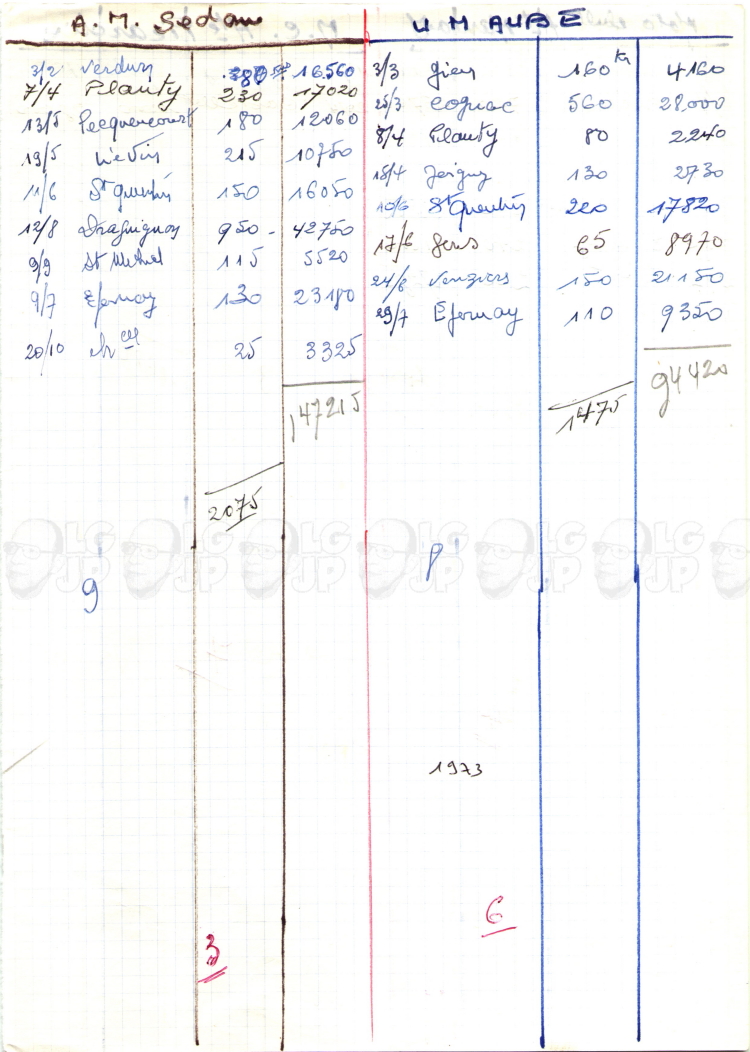 A. M. Sedan
3/2 Verdun 16.560
7/4 Plauty 230 17020
13/5 Pecquencourt 180 12060
19/5 Liévin 215 10750
11/6 St Quentin 150 16050
12/8 Draguignan 950 - 42750
9/9 St Michel 115 5520
9/7 Epernay 130 23180
20/10 25 3325
147215
2075
9
3
U M AUBE
3/3 Gien 160 km 4160
25/3 Cognac 560 28.000
8/4 Plauty 80 2240
15/4 Joigny 130 2730
10/6 St Quentin 220 17820
17/6 Sens 65 8970
24/6 Vouziers 150 21150
29/7 Epernay 110 9350
94420
1475
8
1973
6
LG JP LG JP LG JP LG JP LG JP LG JP